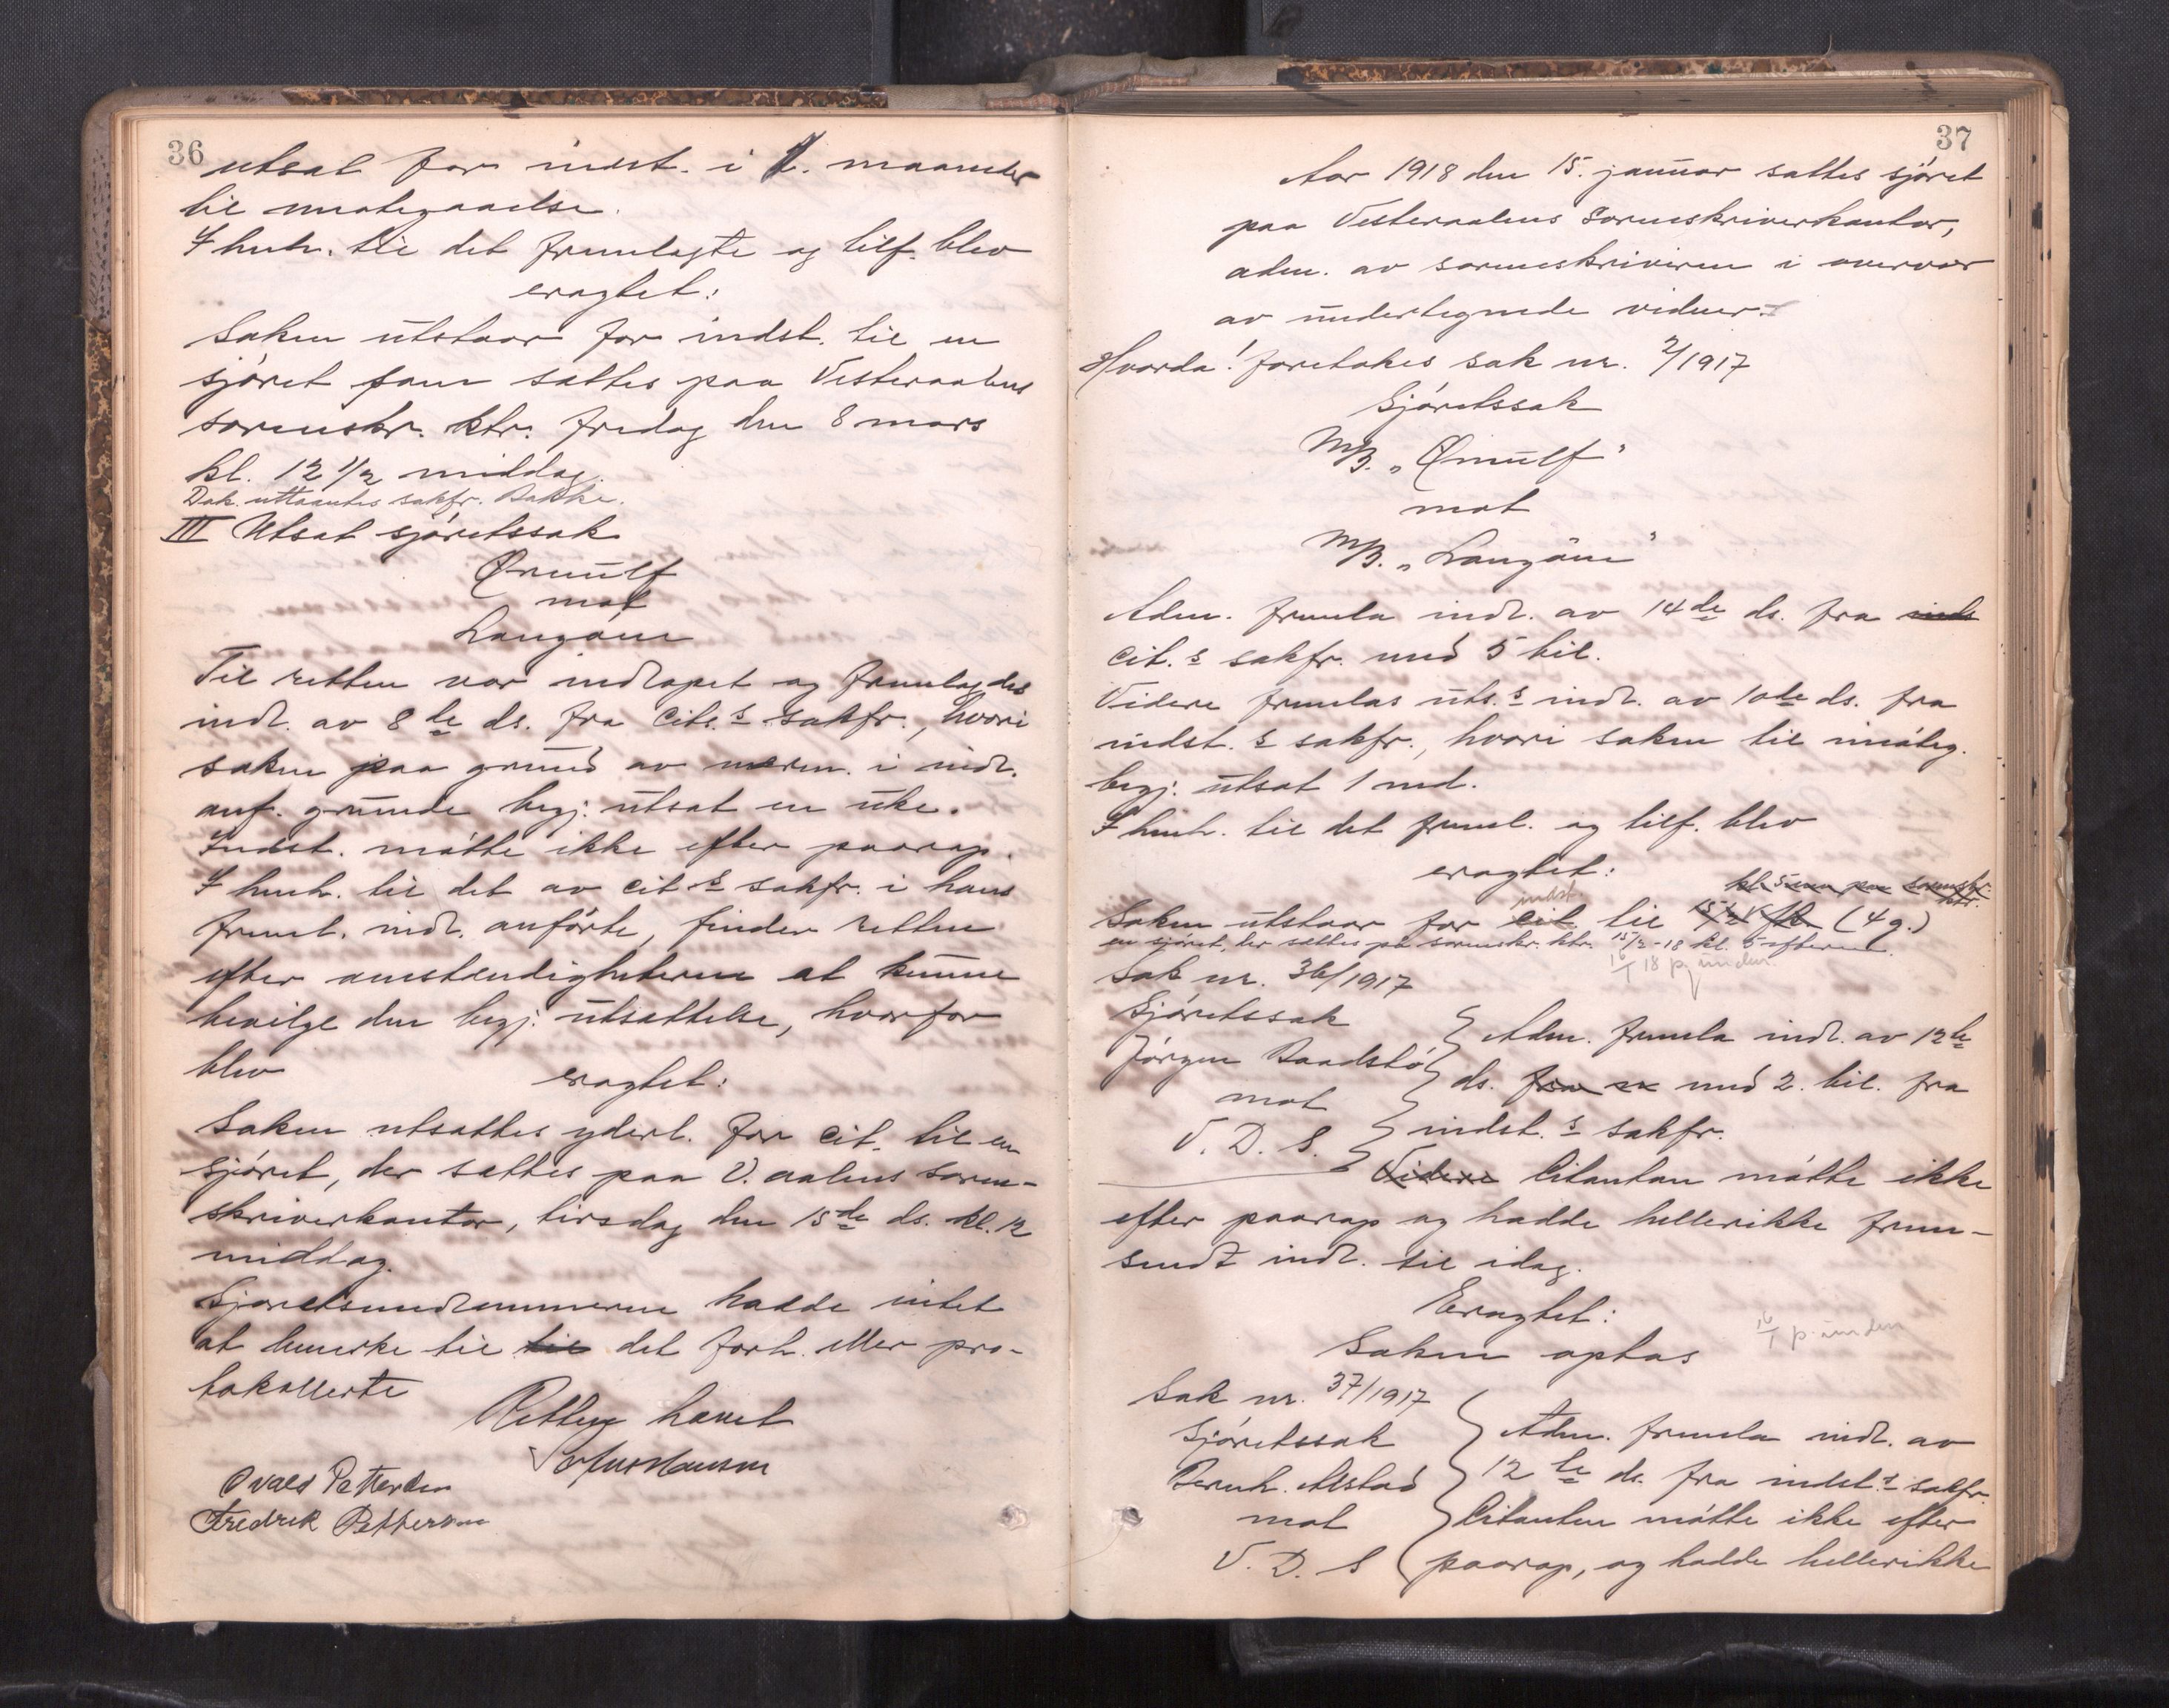 36
utsat for indst. i 2. maaneder
til imøtegaaelse.
I henh. til det fremlagte og tilf. blev
eragtet:
Saken utstaar for indst. til en
sjöret som sættes paa Vesteraalens
sorenskr. ktr. fredag den 8 mars
kl. 12 1/2 middag.
Dok. uttoantes sakfr. Bakke.
III Utsat sjöretssak
Ørnulf
mot
Langöun
Til retten var indlöpet og fremlagdes
indl. av 8de ds. fra Cits.s sakfr., hvori
saken paa grund av nærm. i indl.
anf. grunde begj. utsat en uke.
Indst. mötte ikke efter paarop.
I henh. til det av cit.s sakfr. i hans
freml. indl. anförte, finder retten
efter omstændigheterne at kunne
bevilge den begj. utsættelse, hvorfor
blev eragtet:
Saken utsættes yderl. for cit. til en
sjöret, der sættes paa V.aalens soren-
skriverkontor, tirsdag den 15de ds. kl. 12
middag.
Sjøretsmedlemmerne hadde intet
at bemerke til til det forh. eller pro-
tokollerte
Retten hævet
Ovald Pettersen
Fredrik Pettersen
37
Aar 1918 den 15. januar sattes sjöret
paa Vesteraalens Sorenskriverkontor,
adm. av sorenskriveren i overvær
av undertegnede vidner.
Hvorda! foretokes sak nr. 2/1917
Sjöretssak
M/B. „Ørnulf"
mot
M/B. „Langöun"
Adm. fremla indl. av 14de ds. fra inds
cit.s sakfr. med 5 bil.
Videre fremlas uts.s indl. av 10de ds. fra
indst.s sakfr., hvori saken til imöteg.
begj. utsat 1 md.
I henh. til det freml. og tilf. blev
eragtet:
kl 5 em paa sorenskr. ktr.
indst
Saken utstaar for cit. til 15/2 (4 g.)
en sjöret, der sættes på sorenskr. ktr. 15/2-18 kl. 5 efterm.
16/1 18 p. unden.
Sak nr. 36/1917
Sjöretssak
Jörgen Baadstö
mot
V. D. S.
Adm. fremla indl. av 12te
ds. fra med 2. bil. fra
indst.s sakfr.
Videre Citanten mötte ikke
efter paarop og hadde hellerikke frem-
sendt indl. til idag.
Eragtet:
Saken optas
16/1 p. unden
Sak nr. 37/1917
Sjöretssak
Bernh. Alstad
mot
V. D. S
Adm. fremla indl. av
12te ds. fra indst.s sakfr.
Citanten mötte ikke efter
paarop, og hadde hellerikke